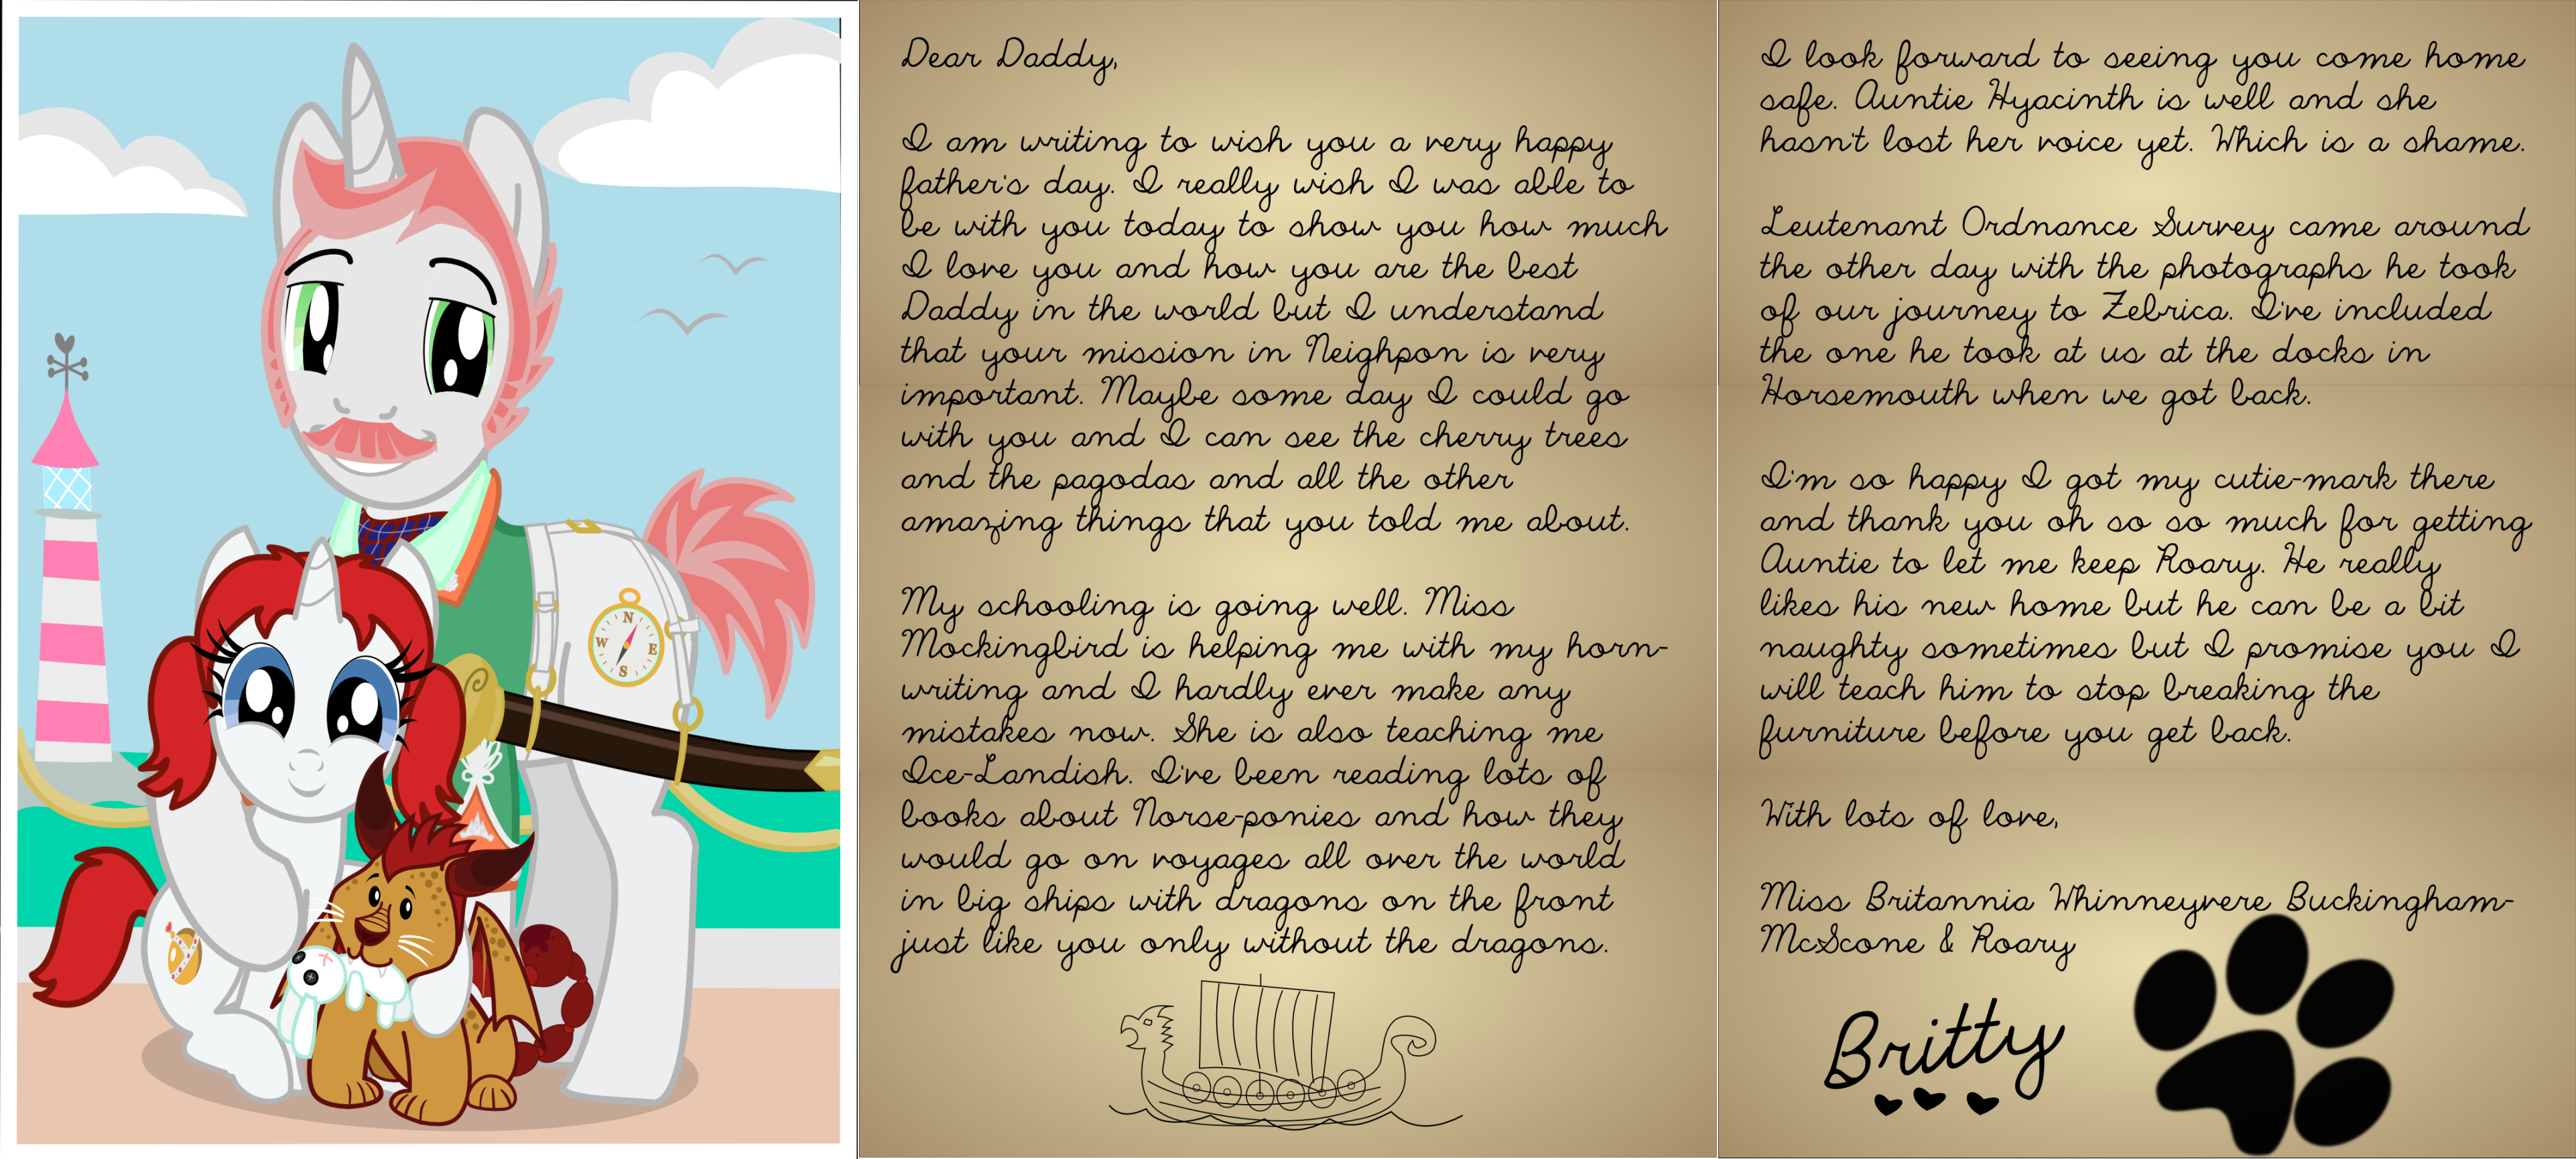 N
W
E
S
Dear Daddy,
I am writing to wish you a very happy
father's day. I really wish I was able to
be with you today to show you how much
I love you and how you are the best
Daddy in the world but I understand
that your mission in Neighpon is very
important. Maybe some day I could go
with you and I can see the cherry trees
and the pagodas and all the other
amazing things that you told me about.
My schooling is going well. Miss
Mockingbird is helping me with my horn-
writing and I hardly ever make any
mistakes now. She is also teaching me
Ice-Landish. I've been reading lots of
books about Norse-ponies and how they
would go on voyages all over the world
in big ships with dragons on the front
just like you only without the dragons.
I look forward to seeing you come home
safe. Auntie Hyacinth is well and she
hasn't lost her voice yet. Which is a shame.
Leutenant Ordnance Survey came around
the other day with the photographs he took
of our journey to Zebrica. I've included
the one he took at us at the docks in
Horsemouth when we got back.
I'm so happy I got my cutie-mark there
and thank you oh so so much for getting
Auntie to let me keep Roary. He really
likes his new home but he can be a bit
naughty sometimes but I promise you I
will teach him to stop breaking the
furniture before you get back.
With lots of love,
Miss Britannia Whinneyvere Buckingham-
McScone & Roary
Britty